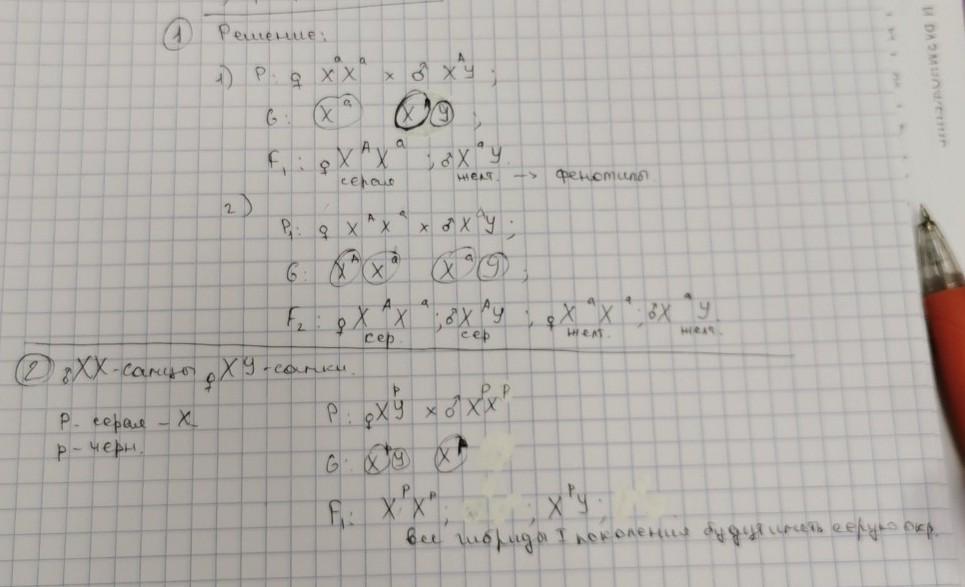 ① Решение:
1) P: ♀ XᵃXᵃ × ♂ XᴬY ;
G: Xᵃ Xᴬ Y ;
F₁: ♀ XᴬXᵃ ; ♂ XᵃY.
серая желт. → фенотипы.
2)
P₁: ♀ XᴬXᵃ × ♂ XᴬY ;
G: Xᴬ Xᵃ Xᵃ Y ;
F₂: ♀ XᴬXᵃ ; ♂ XᴬY ; ♀ XᵃXᵃ ; ♂ XᵃY.
сер. сер желт. желт.
② ♂ XX - самцы ♀ XY - самки.
P - серая - X
p - черн.
P: ♀ XᵖY × ♂ XᴾXᴾ
G: Xᵖ Y Xᴾ
F₁: XᴾXᵖ ; ; XᴾY ;
все гибриды I поколения будут иметь серую окр.